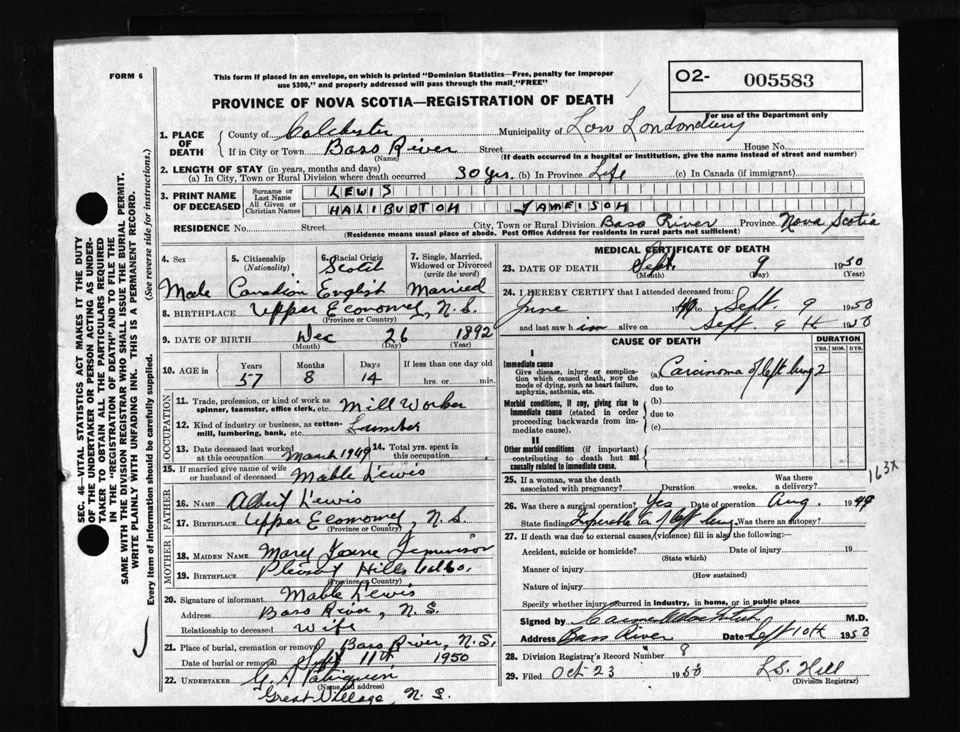 FORM 6
This form if placed in an envelope, on which is printed "Dominion Statistics—Free, penalty for improper
use $300," and properly addressed will pass through the mail "FREE"
O2- 005583
For use of the Department only
PROVINCE OF NOVA SCOTIA—REGISTRATION OF DEATH
1. PLACE OF DEATH County of Colchester Municipality of Low Londonderry
If in City or Town Bass River Street House No.
(Name) (If death occurred in a hospital or institution, give the name instead of street and number)
2. LENGTH OF STAY (in years, months and days)
(a) In City, Town or Rural Division where death occurred 30 yrs. (b) In Province Life (c) In Canada (if immigrant)
3. PRINT NAME OF DECEASED Surname or Last Name LEWIS
All Given or Christian Names HALIBURTON JAMEISON
RESIDENCE No. Street City, Town or Rural Division Bass River Province Nova Scotia
(Residence means usual place of abode. Post Office Address for residents in rural parts not sufficient)
4. Sex 5. Citizenship (Nationality) 6. Racial Origin 7. Single, Married, Widowed or Divorced (write the word)
Scotch
Male Canadian English Married
8. BIRTHPLACE Upper Economy, N.S.
(Province or Country)
9. DATE OF BIRTH Dec 26 1892
(Month) (Day) (Year)
10. AGE in Years Months Days If less than one day old
57 8 14 hrs. or min.
OCCUPATION
11. Trade, profession, or kind of work as spinner, teamster, office clerk, etc. Mill Worker
12. Kind of industry or business, as cotton-mill, lumbering, bank, etc. Lumber
13. Date deceased last worked at this occupation March 1949 14. Total yrs. spent in this occupation
15. If married give name of wife or husband of deceased Mable Lewis
FATHER
16. NAME Albert Lewis
17. BIRTHPLACE Upper Economy, N.S.
(Province or Country)
MOTHER
18. MAIDEN NAME Mary Jane
19. BIRTHPLACE Pleasant Hills
(Province or Country)
20. Signature of informant Mable Lewis
Address Bass River, N.S.
Relationship to deceased Wife
21. Place of burial, cremation or removal Bass River, N.S.
Date of burial or removal Sept 11th 1950
22. UNDERTAKER
(Name and address)
Great Village, N.S.
MEDICAL CERTIFICATE OF DEATH
23. DATE OF DEATH Sept. 9 1950
(Month) (Day) (Year)
24. I HEREBY CERTIFY that I attended deceased from
June 1949 Sept. 9 1950
and last saw him alive on Sept. 9th 1950
CAUSE OF DEATH DURATION
YRS. MOS. DYS.
I
Immediate cause
Give disease, injury or complication which caused death, NOT the mode of dying, such as heart failure, asphyxia, asthenia, etc.
(a) Carcinoma of left lung 2
due to
Morbid conditions, if any, giving rise to immediate cause (stated in order proceeding backwards from immediate cause).
(b)
due to
(c)
II
Other morbid conditions (if important) contributing to death but not causally related to immediate cause.
163x
25. If a woman, was the death associated with pregnancy? Duration weeks. Was there a delivery?
26. Was there a surgical operation? Yes Date of operation Aug. 1949
State finding Inoperable Ca of left lung. Was there an autopsy?
27. If death was due to external causes (violence) fill in also the following:—
Accident, suicide or homicide? Date of injury 19
(State which)
Manner of injury
(How sustained)
Nature of injury
Specify whether injury occurred in industry, in home, or in public place
Signed by M.D.
Address Bass River Date Sept 10th 1950
28. Division Registrar's Record Number 9
29. Filed Oct 23 1950 L.S. Hill
(Division Registrar)
SEC. 46—VITAL STATISTICS ACT MAKES IT THE DUTY
OF THE UNDERTAKER OR PERSON ACTING AS UNDER-
TAKER TO OBTAIN ALL THE PARTICULARS REQUIRED
IN THE "REGISTRATION OF DEATH" AND TO FILE THE
SAME WITH THE DIVISION REGISTRAR WHO SHALL ISSUE THE BURIAL PERMIT.
WRITE PLAINLY WITH UNFADING INK. THIS IS A PERMANENT RECORD.
Every item of information should be carefully supplied. (See reverse side for instructions.)